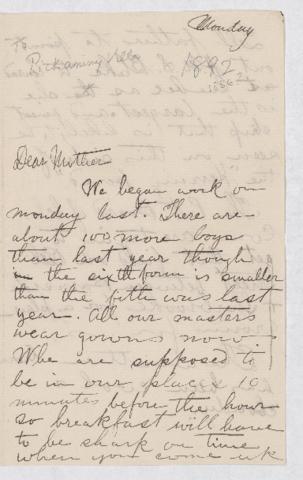 Monday
To
Pickaninny Villa
1892
1886?
Dear Mother
We began work on
monday last. There are
about 100 more boys
than last year though
in the sixth form is smaller
than the fifth was last
year. All our masters
wear gowns now.
Whe are supposed to
be in our places 10
minutes before the hour
so breakfast will have
to be shark on time
when you come up